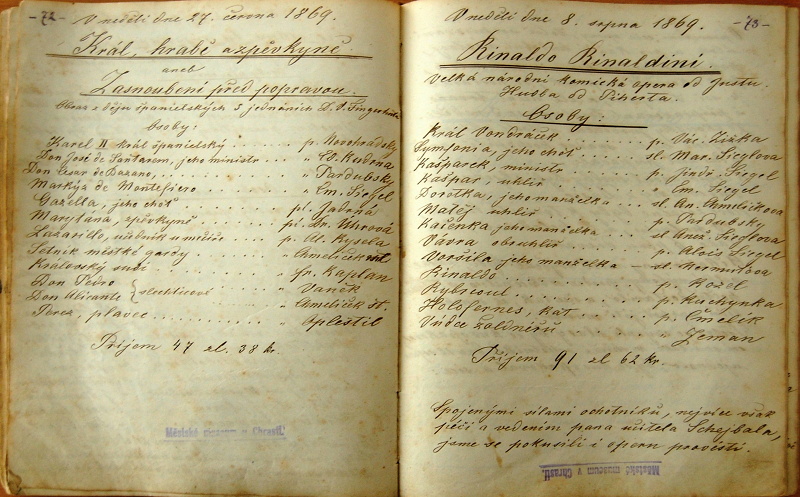 - 72 -
V neděli dne 27. června 1869.
Král, hrabě a zpěvkyně
aneb
Zasnoubení před popravou.
Obraz z děju španielských v 5 jednáních
Osoby:
Karel II král španielský . . . . p. Novohradský
Don José de Santarem, jeho ministr . . . " Kudrna
Don Cesar de Bazano, . . . . " Pardubský
Markýz de Montefiero . . . . " Em. Siegel
Gazella, jeho choť . . . . pí. Jadrná
Marytána, zpěvkyně . . . . pí. Uhrová
Lazarillo, učedník u mečíře . . p. Al. Kysela
Setník městké gardy . . . . " Chmelíček ml.
Královský sudí . . . . " Fr. Kaplan
Don Pedro } šlechticové . . . " Vaněk
Don Alirante } . . . " Chmelíček st.
Perez, plavec . . . . " Oplestil
Příjem 47 zl. 38 kr.
Městské museum v Chrasti.
- 73 -
V neděli dne 8. srpna 1869.
Rinaldo Rinaldini.
Velká národní komická opera od Justa.
Hudba od Piherta.
Osoby:
Král Vondráček . . . . p. Vác. Žižka
Sumfonia, jeho choť . . . . sl. Mar. Sieglova
Kašparek, ministr . . . . p. Jindř. Siegel
Kašpar uhlíř . . . . " Em. Siegel
Dorotka, jeho manželka . . . sl. An. Chmelíčkova
Matěj uhlíř . . . . p. Pardubský
Kačenka jeho manželka . . . sl. Anež. Sieglova
Vávra obruhlíř . . . . p. Alois Siegel
Voršila jeho manželka . . . sl.
Rinaldo . . . . p. Kozel
. . . . p. Kuchynka
Holofernes, kat . . . . p. Čmelík
Vůdce žoldnéřů . . . . " Zeman
Příjem 91 zl 62 kr.
Spojenými silami ochotníků, nejvíce však
péčí a vedením pana učitele Schejbala,
jsme se pokusili i operu provésti.
Městské museum v Chrasti.